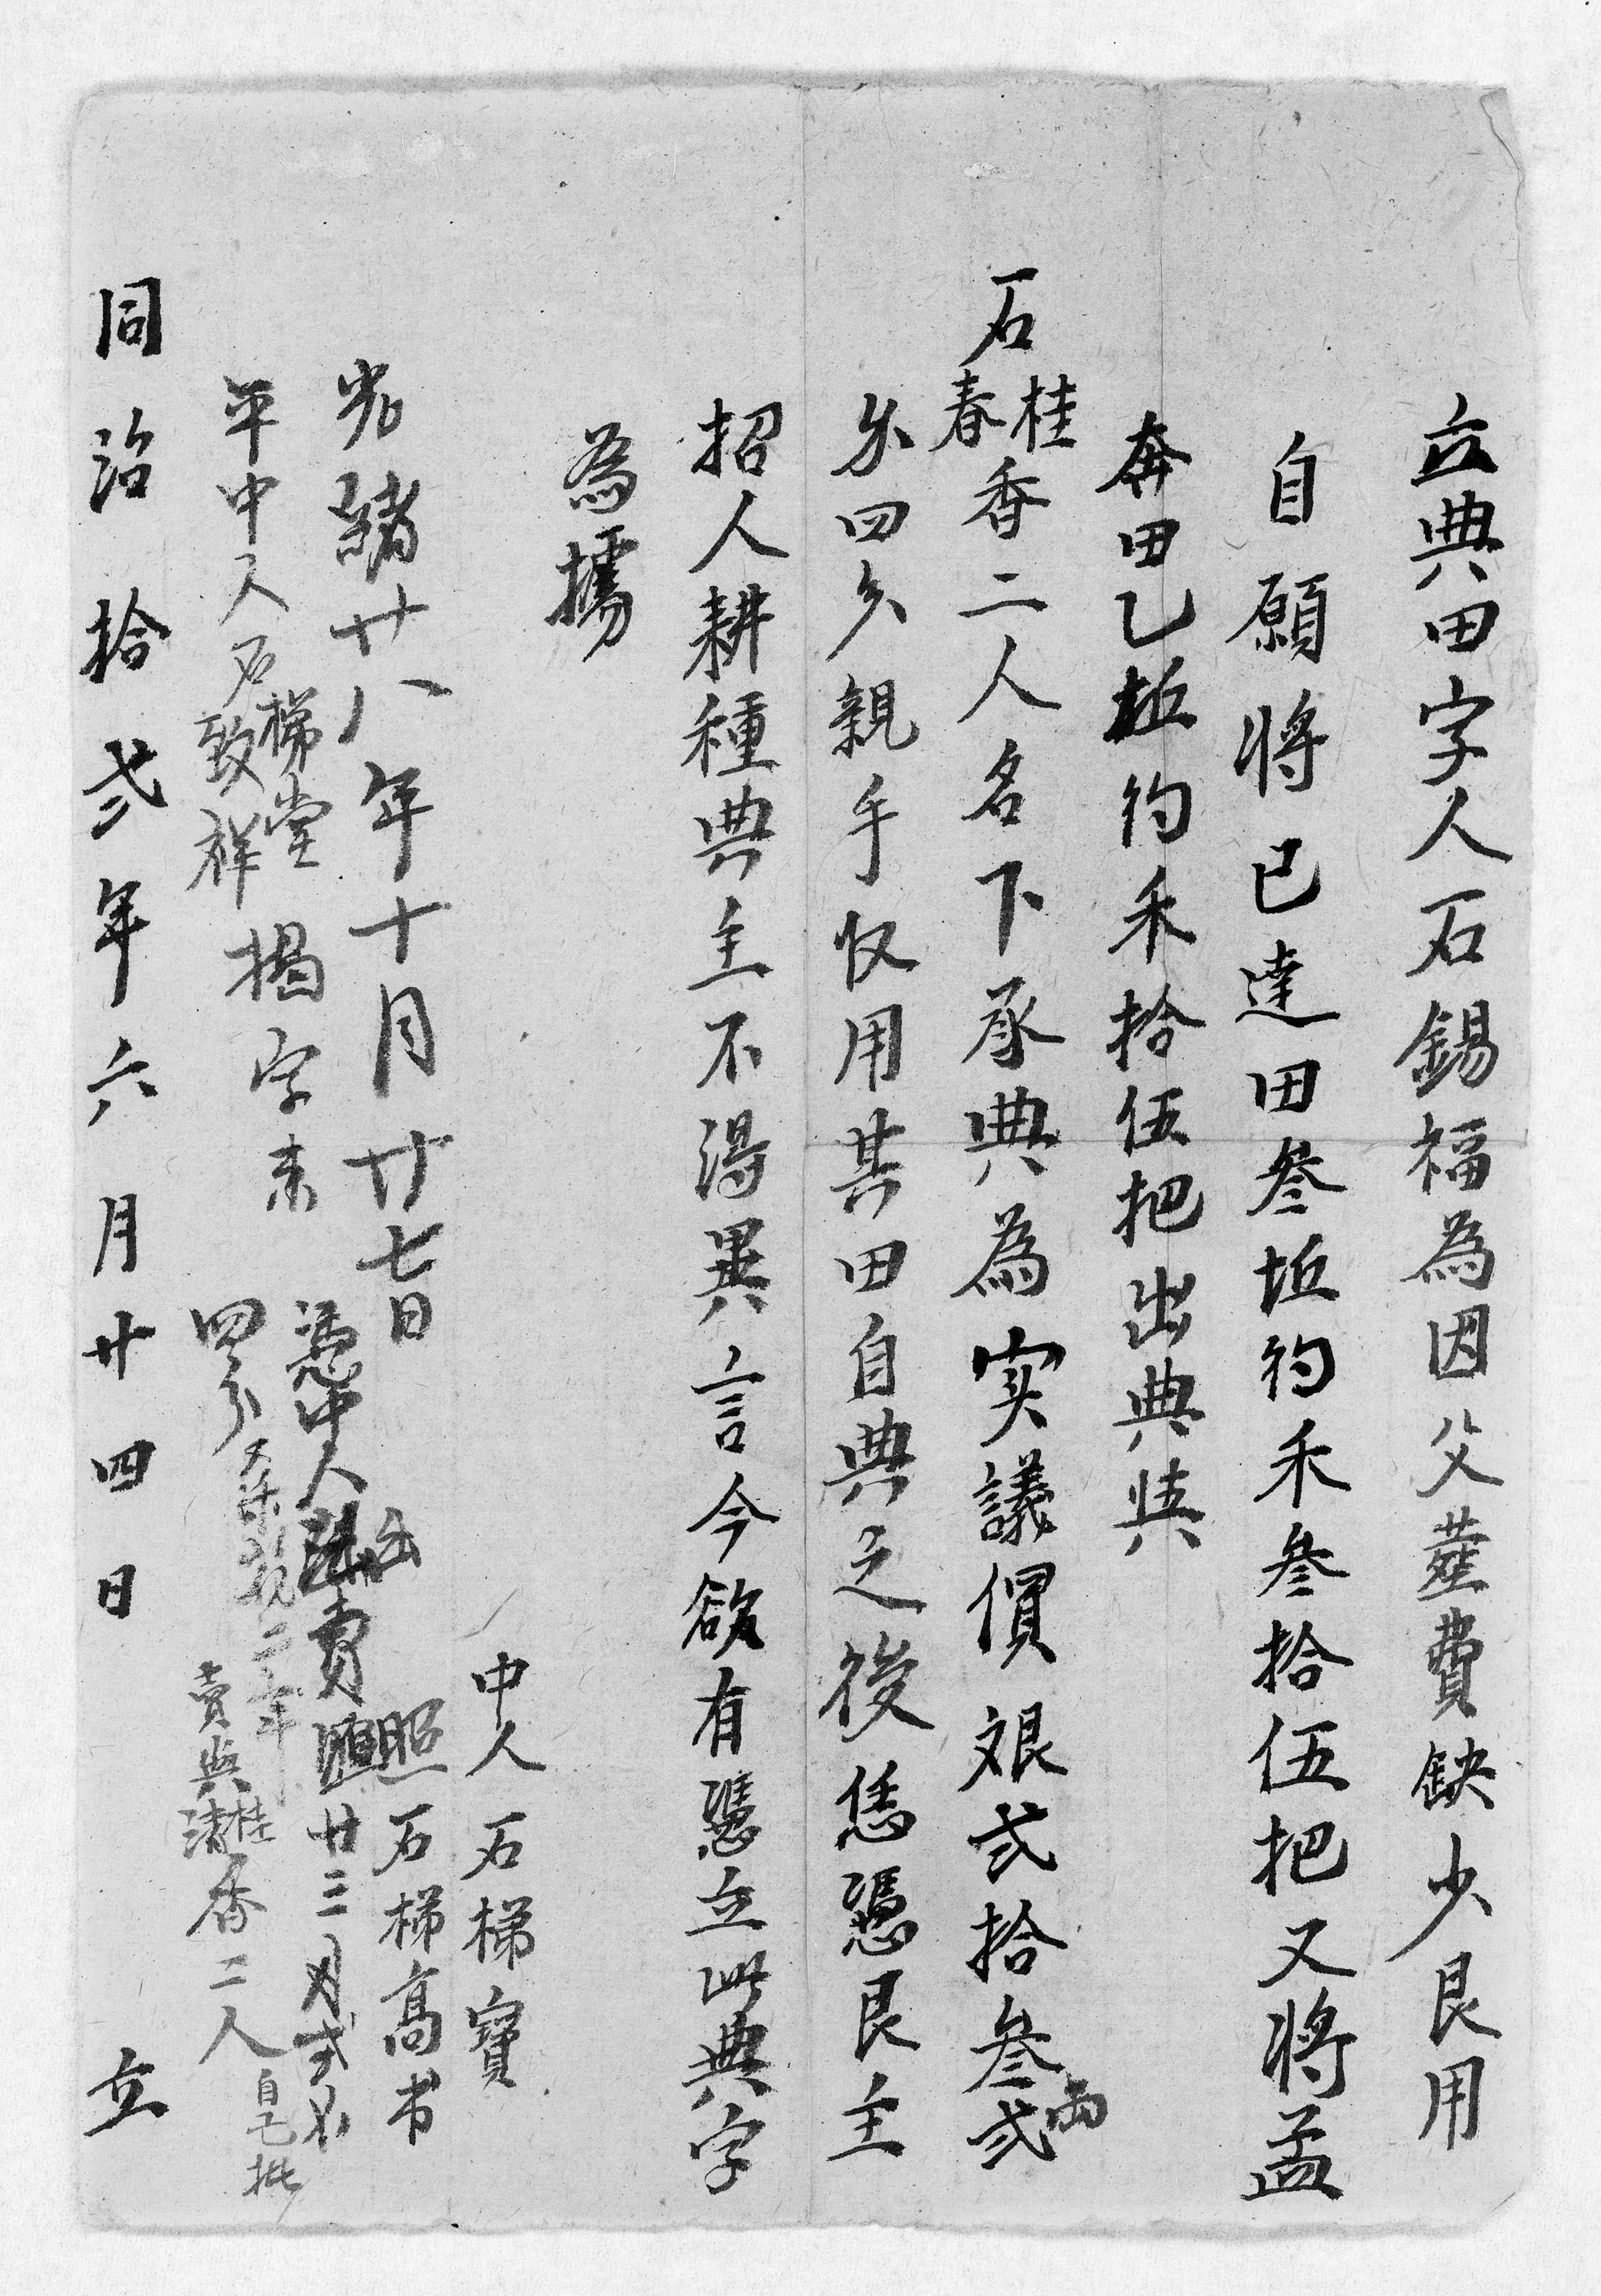 立典田字人石錫福為因父塟費缺少艮用
自願將已達田叁坵約禾叁拾伍把又將孟
奔田乙坵約禾拾伍把出典與
石桂春香二人名下承典為实議價艮弍拾叁兩弍
錢四分親手收用其田自典之後恁憑艮主
招人耕種典主不得異言今欲有憑立此典字
為據
中人石梯寶
照石梯高书
光緒廿八年十月廿七日憑中人出賣廿三
平中人石梯堂致祥揭字來四分賣與桂清香二人自己批
同治拾弍年六月廿四日立